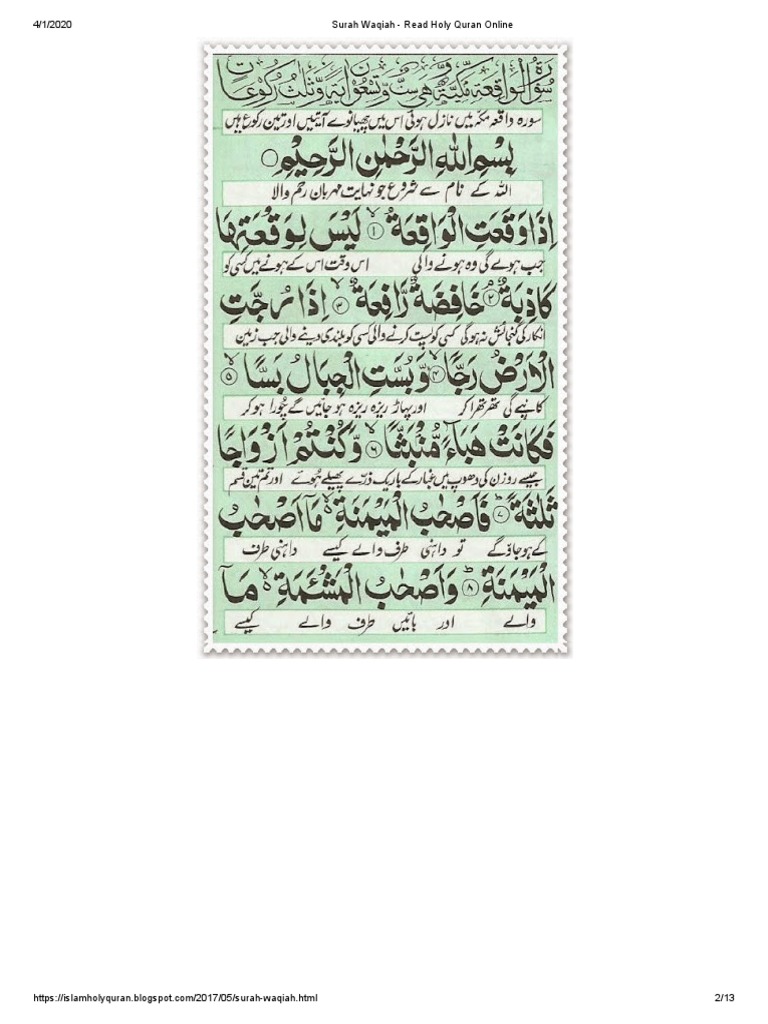 4/1/2020 Surah Waqiah - Read Holy Quran Online
سُوْرَةُ الْوَاقِعَةِ مَكِّيَّةٌ وَّهِيَ سِتٌّ وَّتِسْعُوْنَ اٰيَةً وَّثَلٰثُ رُكُوْعَاتٍ
سورہ واقعہ مکہ میں نازل ہوئی اس میں چھیانوے آیتیں اور تین رکوع ہیں
بِسْمِ اللّٰهِ الرَّحْمٰنِ الرَّحِيْمِ
اللہ کے نام سے شروع جو نہایت مہربان رحم والا
اِذَا وَقَعَتِ الْوَاقِعَةُ ۙ﴿۱﴾ لَيْسَ لِوَقْعَتِهَا
جب ہولے گی وہ ہونے والی اس وقت اس کے ہونے میں کسی کو
كَاذِبَةٌ ۘ﴿۲﴾ خَافِضَةٌ رَّافِعَةٌ ۙ﴿۳﴾ اِذَا رُجَّتِ
انکار کی گنجائش نہ ہوگی کسی کو پست کرنے والی کسی کو بلندی دینے والی جب زمین
الْاَرْضُ رَجًّا ۙ﴿۴﴾ وَّبُسَّتِ الْجِبَالُ بَسًّا ۙ﴿۵﴾
کانپے گی تھرتھرا کر اور پہاڑ ریزہ ریزہ ہو جائیں گے چُورا ہو کر
فَكَانَتْ هَبَآءً مُّنْۢبَثًّا ۙ﴿۶﴾ وَّكُنْتُمْ اَزْوَاجًا
جیسے روزن کی دھوپ میں غبار کے باریک ذرے پھیلے ہوئے اور تم تین قسم
ثَلٰثَةً ؕ﴿۷﴾ فَاَصْحٰبُ الْمَيْمَنَةِ ۙ مَاۤ اَصْحٰبُ
کے ہو جاؤ گے تو داہنی طرف والے کیسے داہنی طرف
الْمَيْمَنَةِ ؕ﴿۸﴾ وَاَصْحٰبُ الْمَشْئَمَةِ ۙ مَاۤ
والے اور بائیں طرف والے کیسے
https://islamholyquran.blogspot.com/2017/05/surah-waqiah.html 2/13